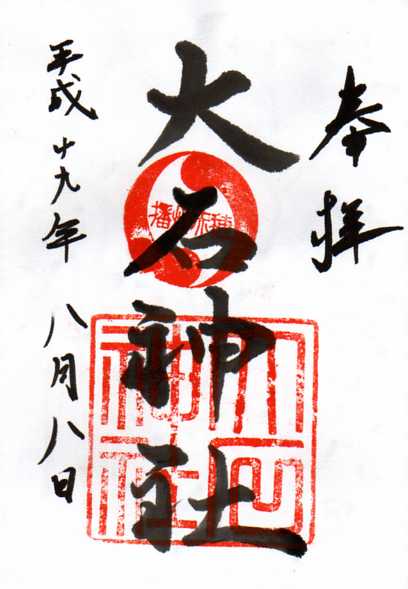 奉拝
大石神社
播州赤穂
大石神社
平成十九年八月八日